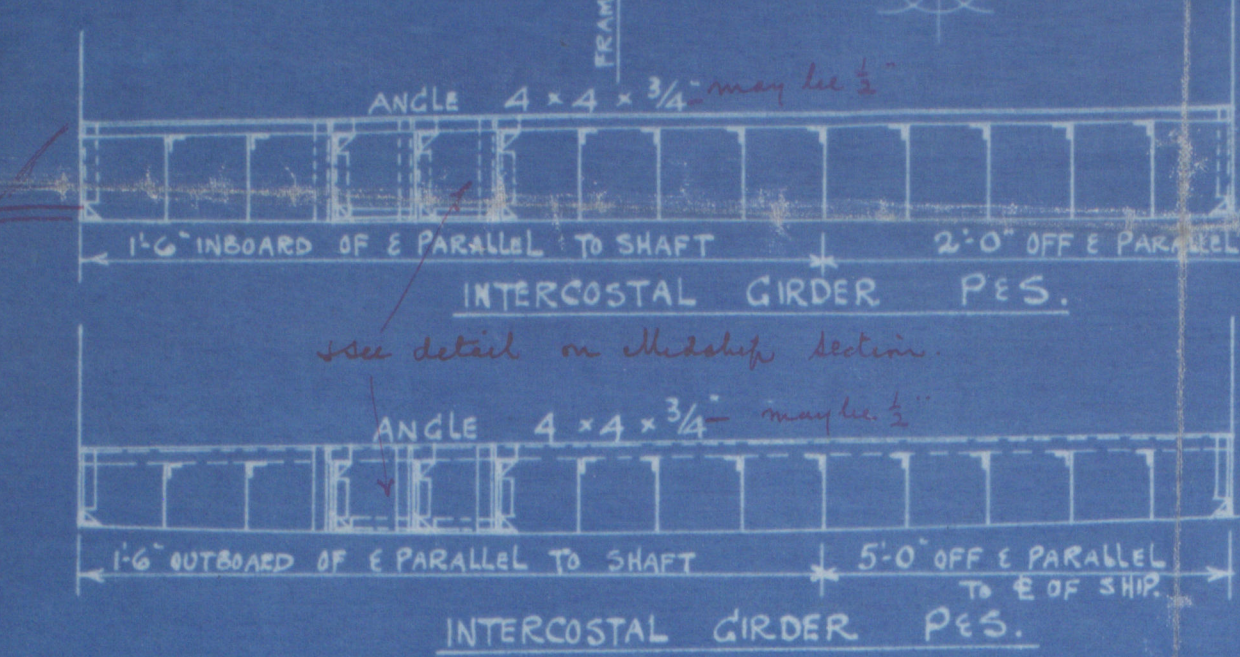 FRAM
ANGLE 4 × 4 × 3/4" may be 1/2"
1'-6" INBOARD OF & PARALLEL TO SHAFT
2'-0" OFF & PARALLEL
INTERCOSTAL GIRDER P&S.
see detail on Midship section.
ANGLE 4 × 4 × 3/4" may be 1/2"
1'-6" OUTBOARD OF & PARALLEL TO SHAFT
5'-0" OFF & PARALLEL
TO ℄ OF SHIP.
INTERCOSTAL GIRDER P&S.